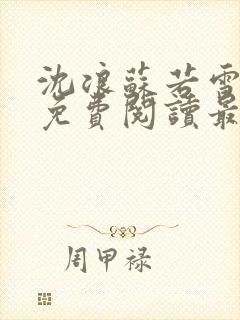 沈浪蘇若雪
免費閱讀最
周甲禄